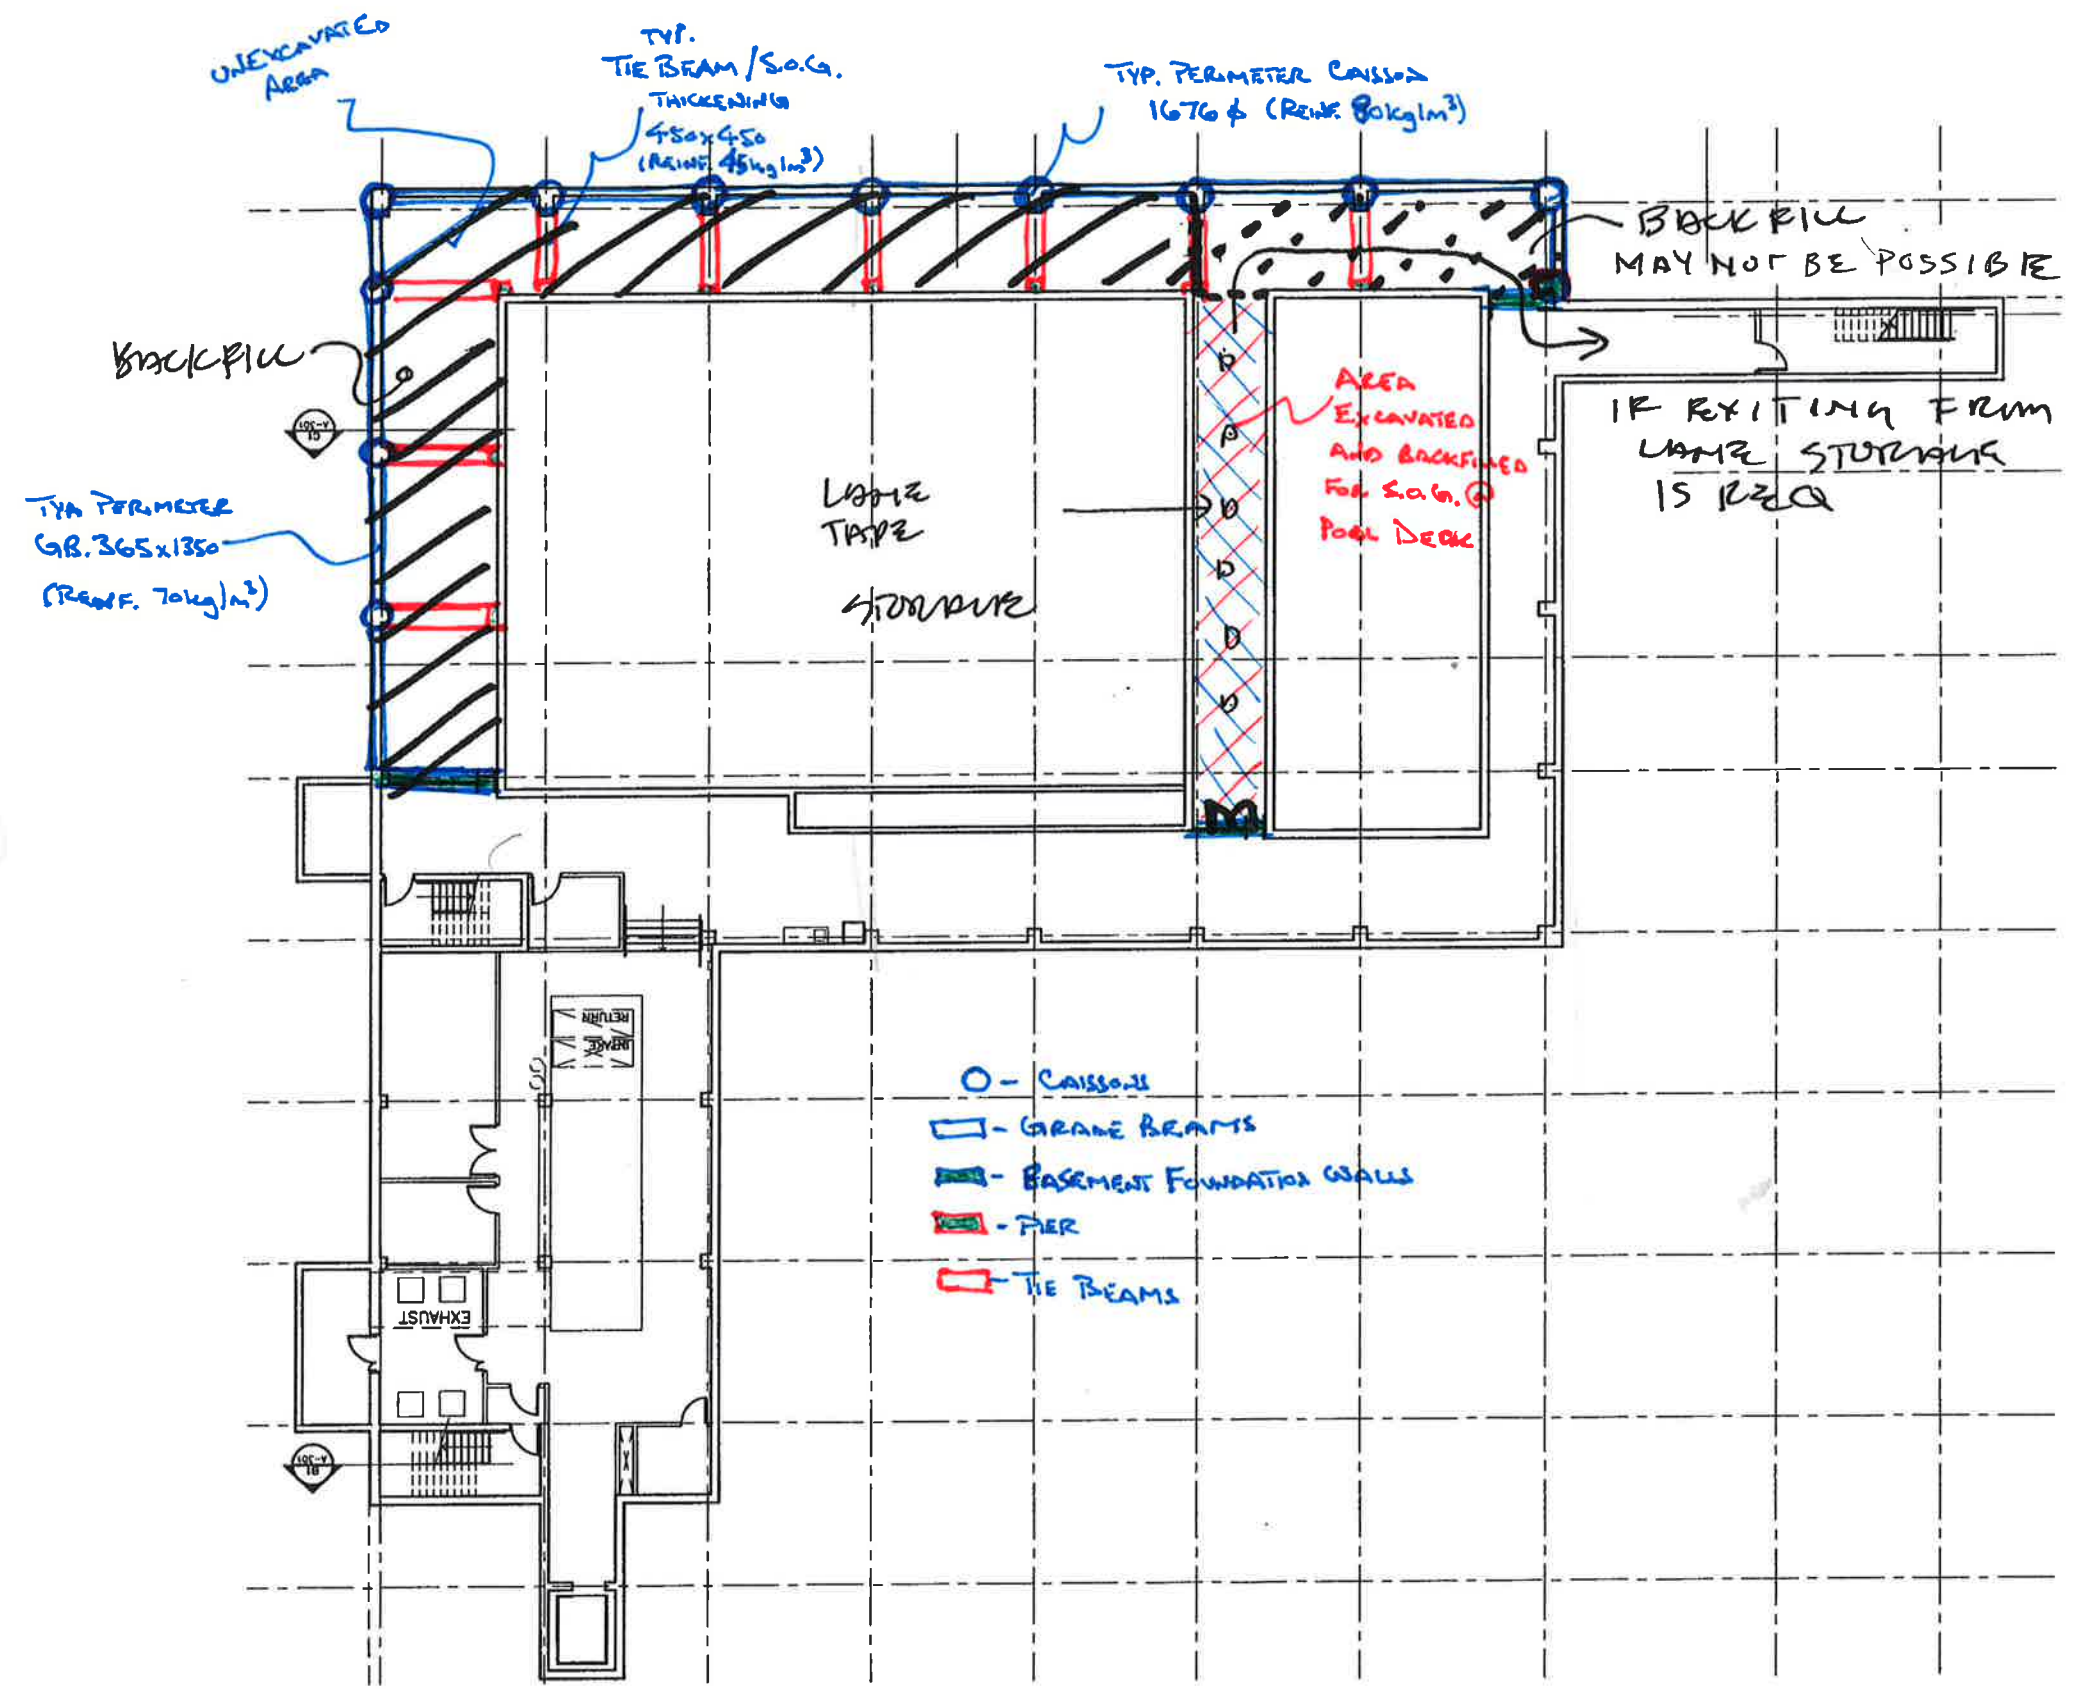 UNEXCAVATED
AREA
TYP.
TIE BEAM / S.O.G.
THICKENING
450x450
(REINF. 45kg/m³)
TYP. PERIMETER CAISSON
1676 ϕ (REINF. 80kg/m³)
BACKFILL
MAY NOT BE POSSIBLE
IF EXITING FROM
LANE STORAGE
IS REQ
BACKFILL
C1
A-301
TYP. PERIMETER
GB. 365x1350
(REINF. 70kg/m³)
LANE
TAPE
STORAGE
AREA
EXCAVATED
AND BACKFILLED
FOR S.O.G. @
POOL DECK
RETURN
INTAKE
O - CAISSONS
- GRADE BEAMS
- BASEMENT FOUNDATION WALLS
- PIER
- TIE BEAMS
EXHAUST
B1
A-301